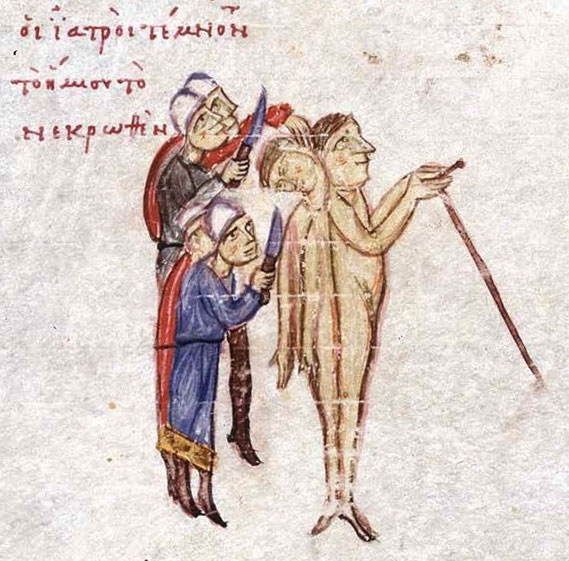 ὁι ϊατρὸι τέμνον
τὸ ἥμισυ τὸ
νεκρωθὲν